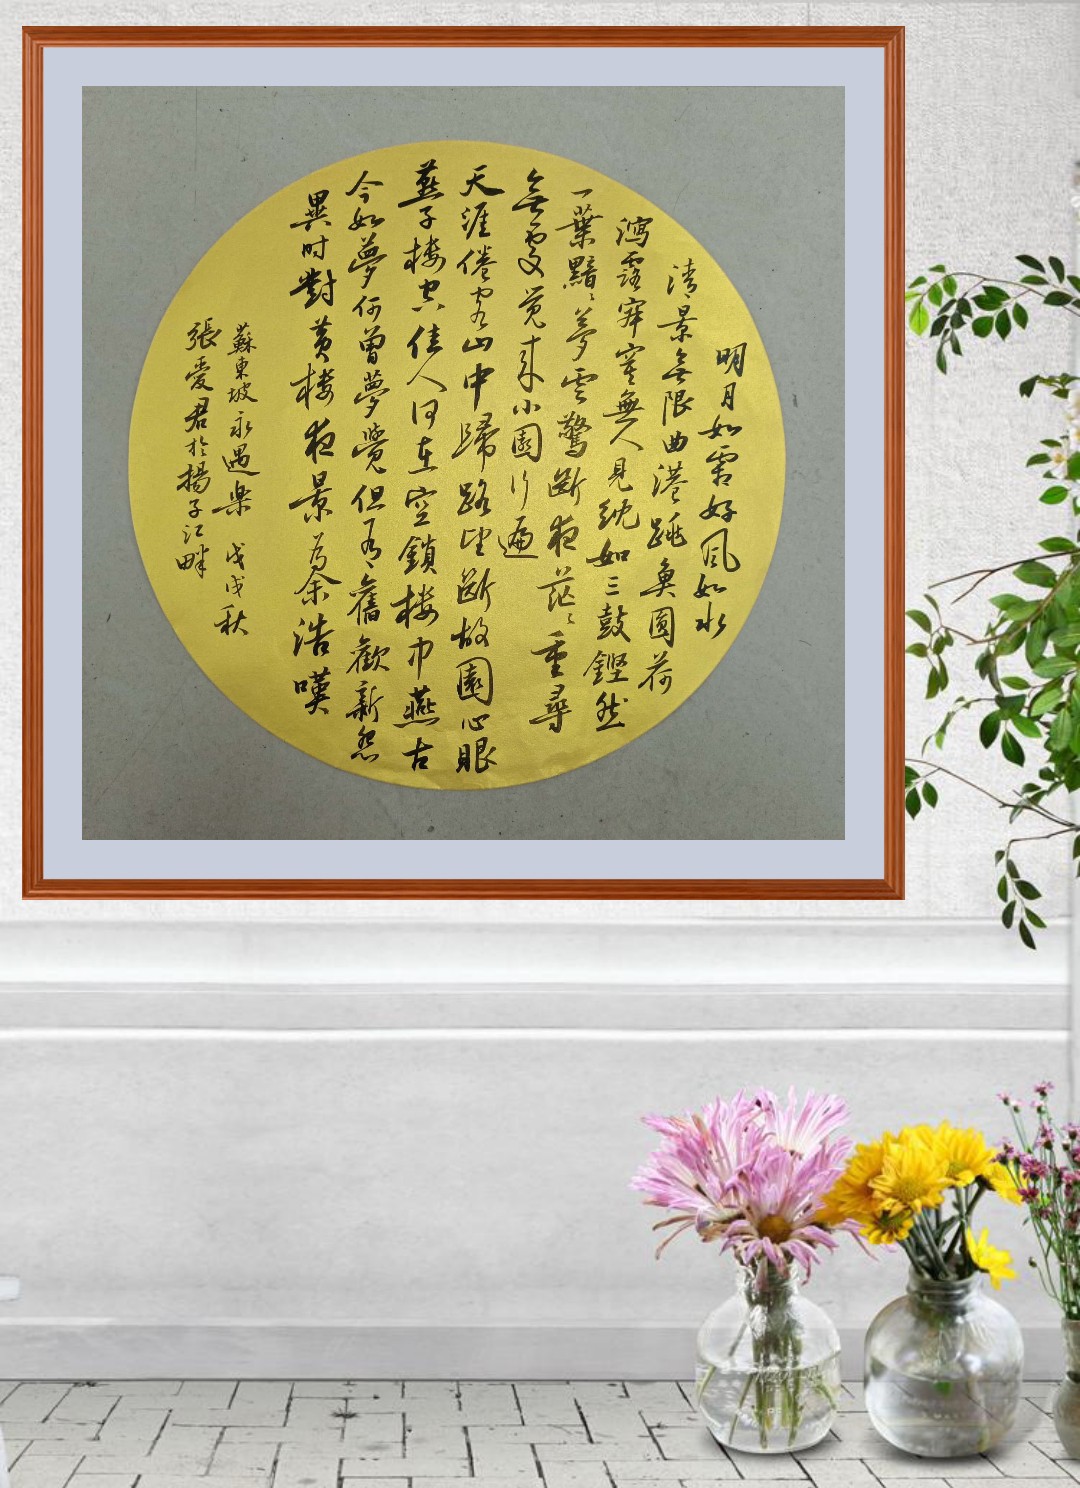 明月如霜好風如水
清景無限曲港跳魚圓荷
瀉露寂寞無人見紞如三鼓鏗然
一葉黯々夢雲驚斷夜茫々重尋
無處覓來小園行遍
天涯倦客山中歸路望斷故園心眼
燕子楼空佳人何在空鎖楼中燕古
今如夢何曾夢覺但有舊歡新怨
異时對黄楼夜景為余浩嘆
蘇東坡永遇樂 戊戌秋
張愛君於揚子江畔